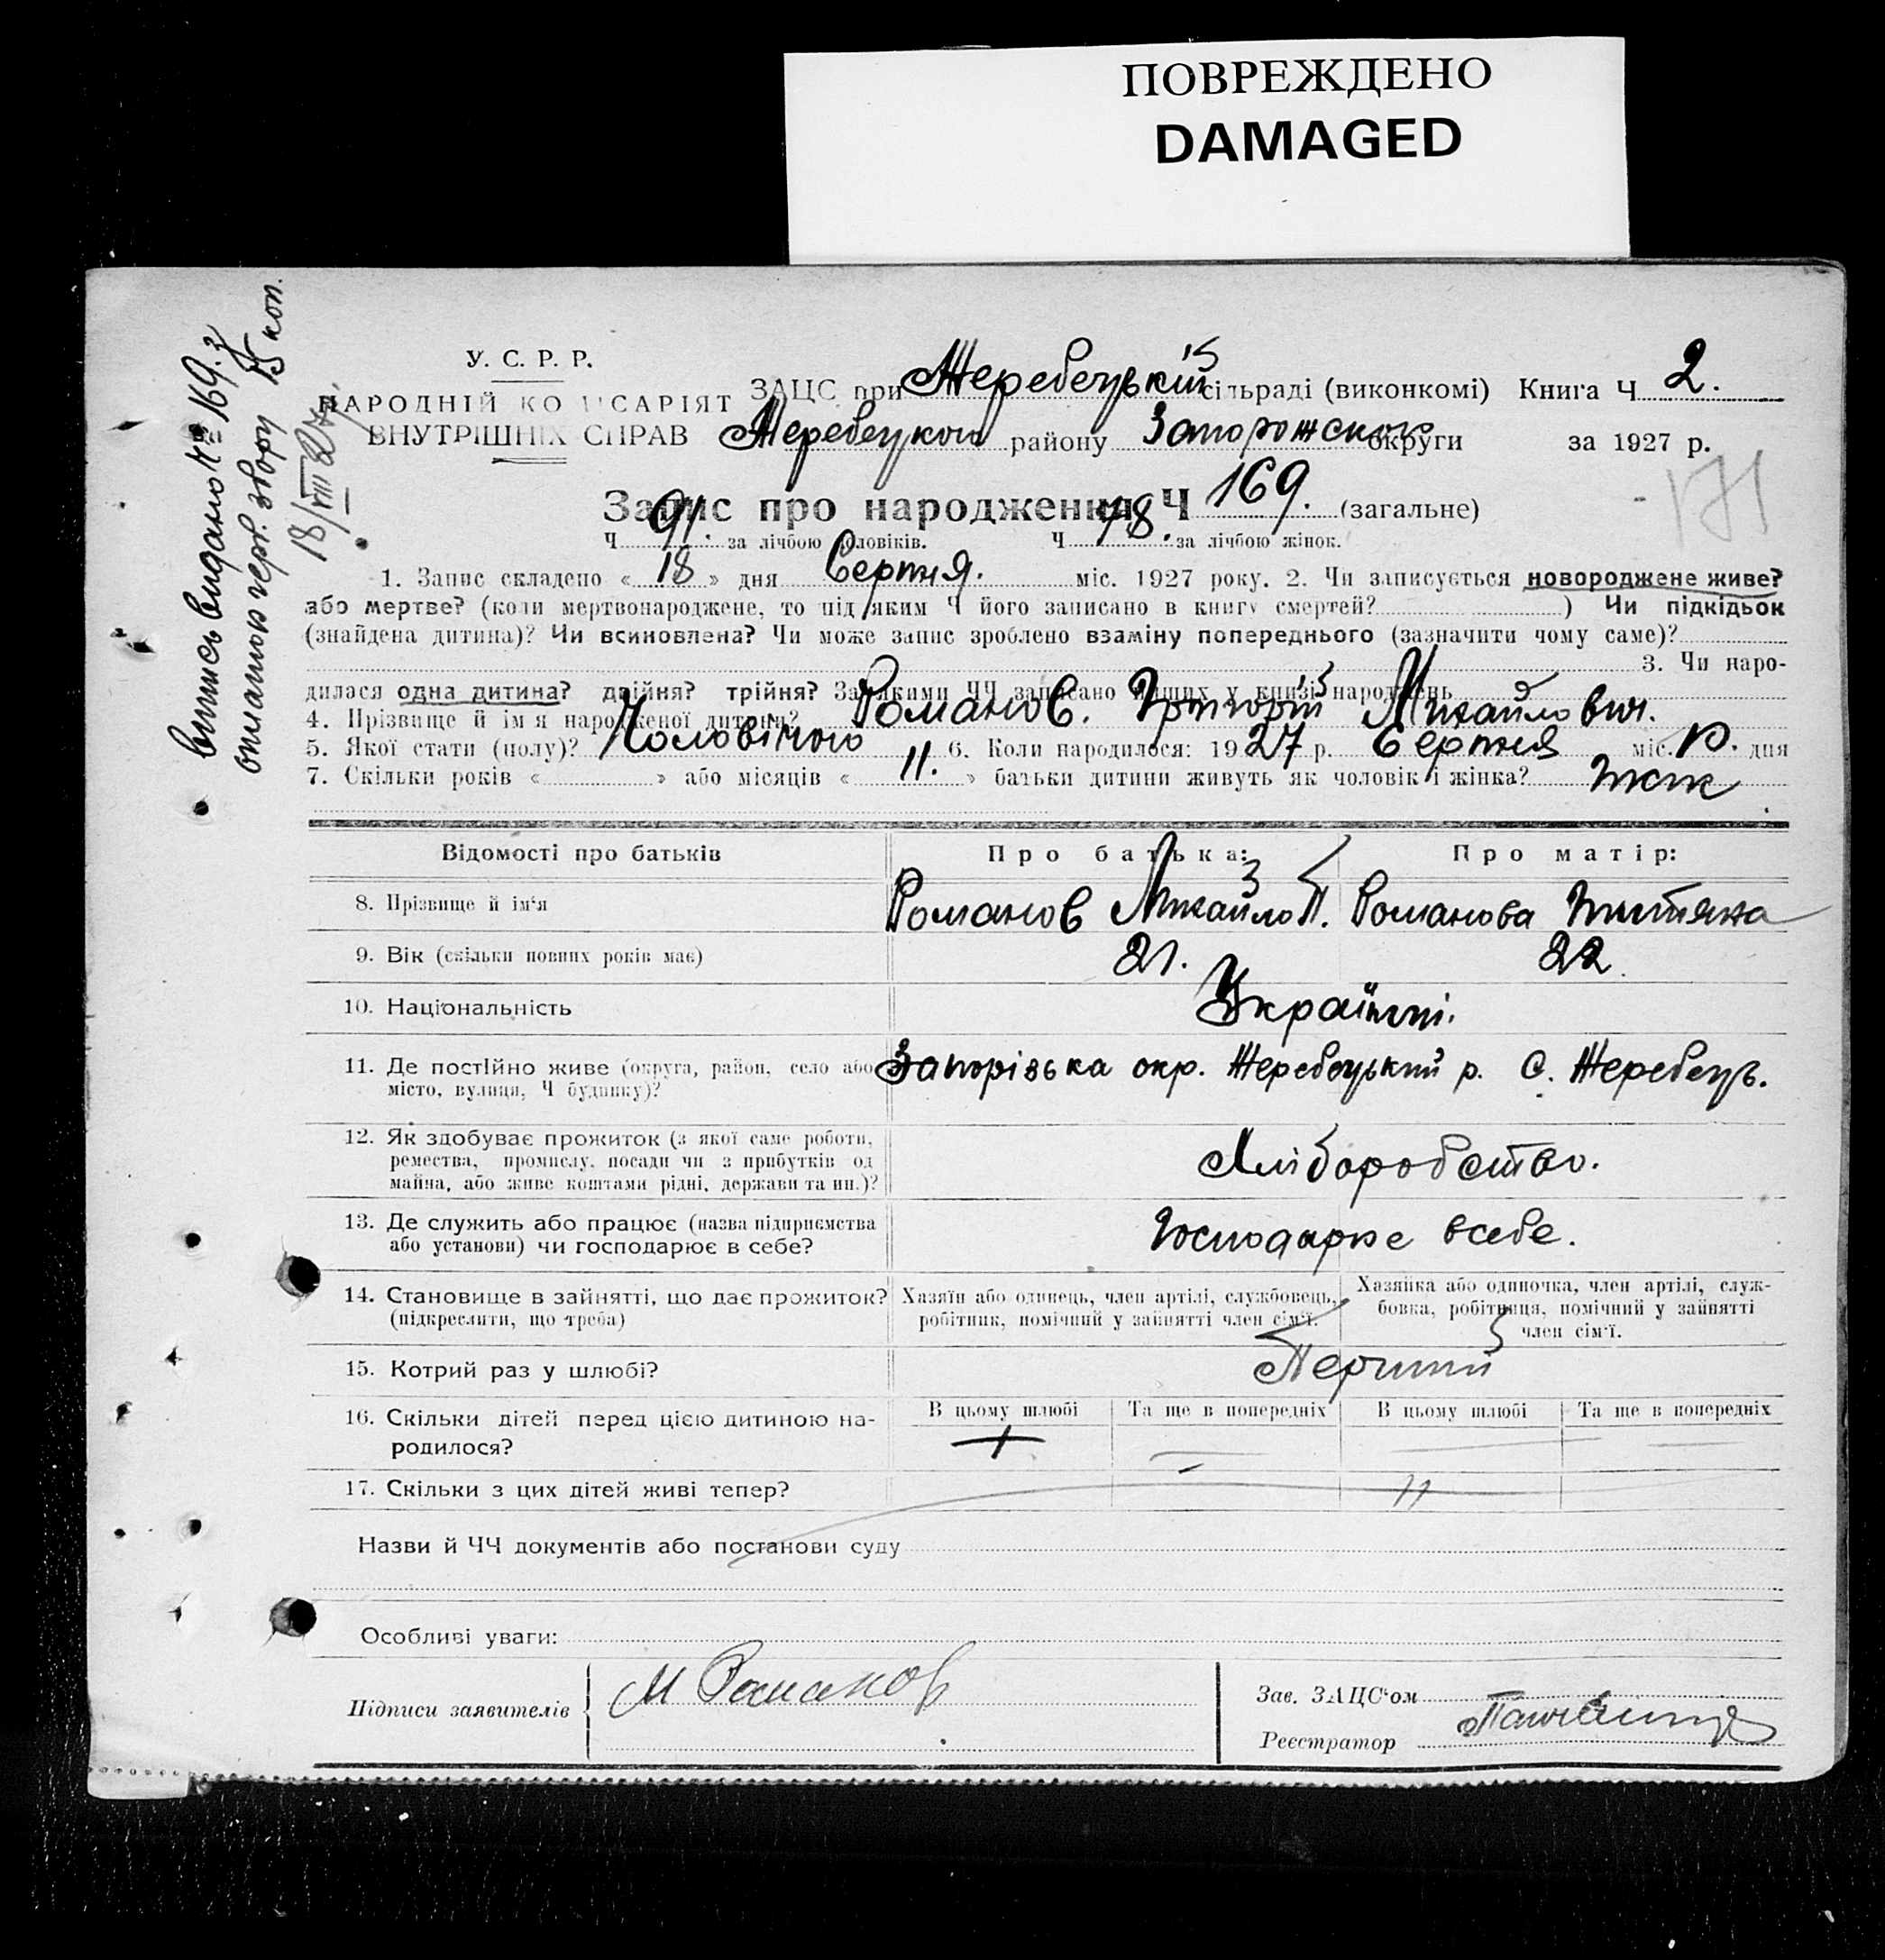 ПОВРЕЖДЕНО
DAMAGED
Випись видано Ч=169. з
оплатою герб. збору 15 коп.
18/VIII 27
У. С. Р. Р.
НАРОДНІЙ КОМІСАРІЯТ
ВНУТРІШНІХ СПРАВ
ЗАЦС при Жеребецькій сільраді (виконкомі) Книга Ч 2.
Жеребецкой району Запорожской округи за 1927 р.
171
Запис про народження Ч 169. (загальне)
Ч 91. за лічбою чоловіків. Ч 78. за лічбою жінок.
1. Запис складено « 18 » дня Серпня. міс. 1927 року. 2. Чи записується новороджене живе?
або мертве? (коли мертвонароджене, то під яким Ч його записано в книгу смертей? ) Чи підкідьок
(знайдена дитина)? Чи всиновлена? Чи може запис зроблено взаміну попереднього (зазначити чому саме)?
3. Чи наро-
дилася одна дитина? двійня? трійня? За якими ЧЧ записано інших у книзі народжень
4. Прізвище й ім'я народженої дитини? Романов. Григорій Михайлович.
5. Якої стати (полу)? Чоловічого 6. Коли народилося: 1927 р. Серпня міс. дня
7. Скільки років « » або місяців « 11. » батьки дитини живуть як чоловік і жінка?
Відомості про батьків Про батька: Про матір:
8. Прізвище й ім'я Романов Михайло П. Романова
9. Вік (скільки повних років має) 21. 22.
10. Національність Українці.
11. Де постійно живе (округа, район, село або Запорізька окр. Жеребецький р. С. Жеребець.
місто, вулиця, Ч будинку)?
12. Як здобуває прожиток (з якої саме роботи,
ремества, промислу, посади чи з прибутків од Хліборобство.
майна, або живе коштами рідні, держави та ин.)?
13. Де служить або працює (назва підприємства Господарює всебе.
або установи) чи господарює в себе?
14. Становище в зайнятті, що дає прожиток? Хазяїн або одинець, член артілі, службовець, Хазяйка або одиночка, член артілі, служ-
(підкреслити, що треба) робітник, помічний у зайнятті член сім'ї. бовка, робітниця, помічний у зайнятті
член сім'ї.
15. Котрий раз у шлюбі? Перший
16. Скільки дітей перед цією дитиною на- В цьому шлюбі Та ще в попередніх В цьому шлюбі Та ще в попередніх
родилося?
17. Скільки з цих дітей живі тепер? "
Назви й ЧЧ документів або постанови суду
Особливі уваги:
Підписи заявителів М Романов Зав. ЗАЦС'ом
Реєстратор